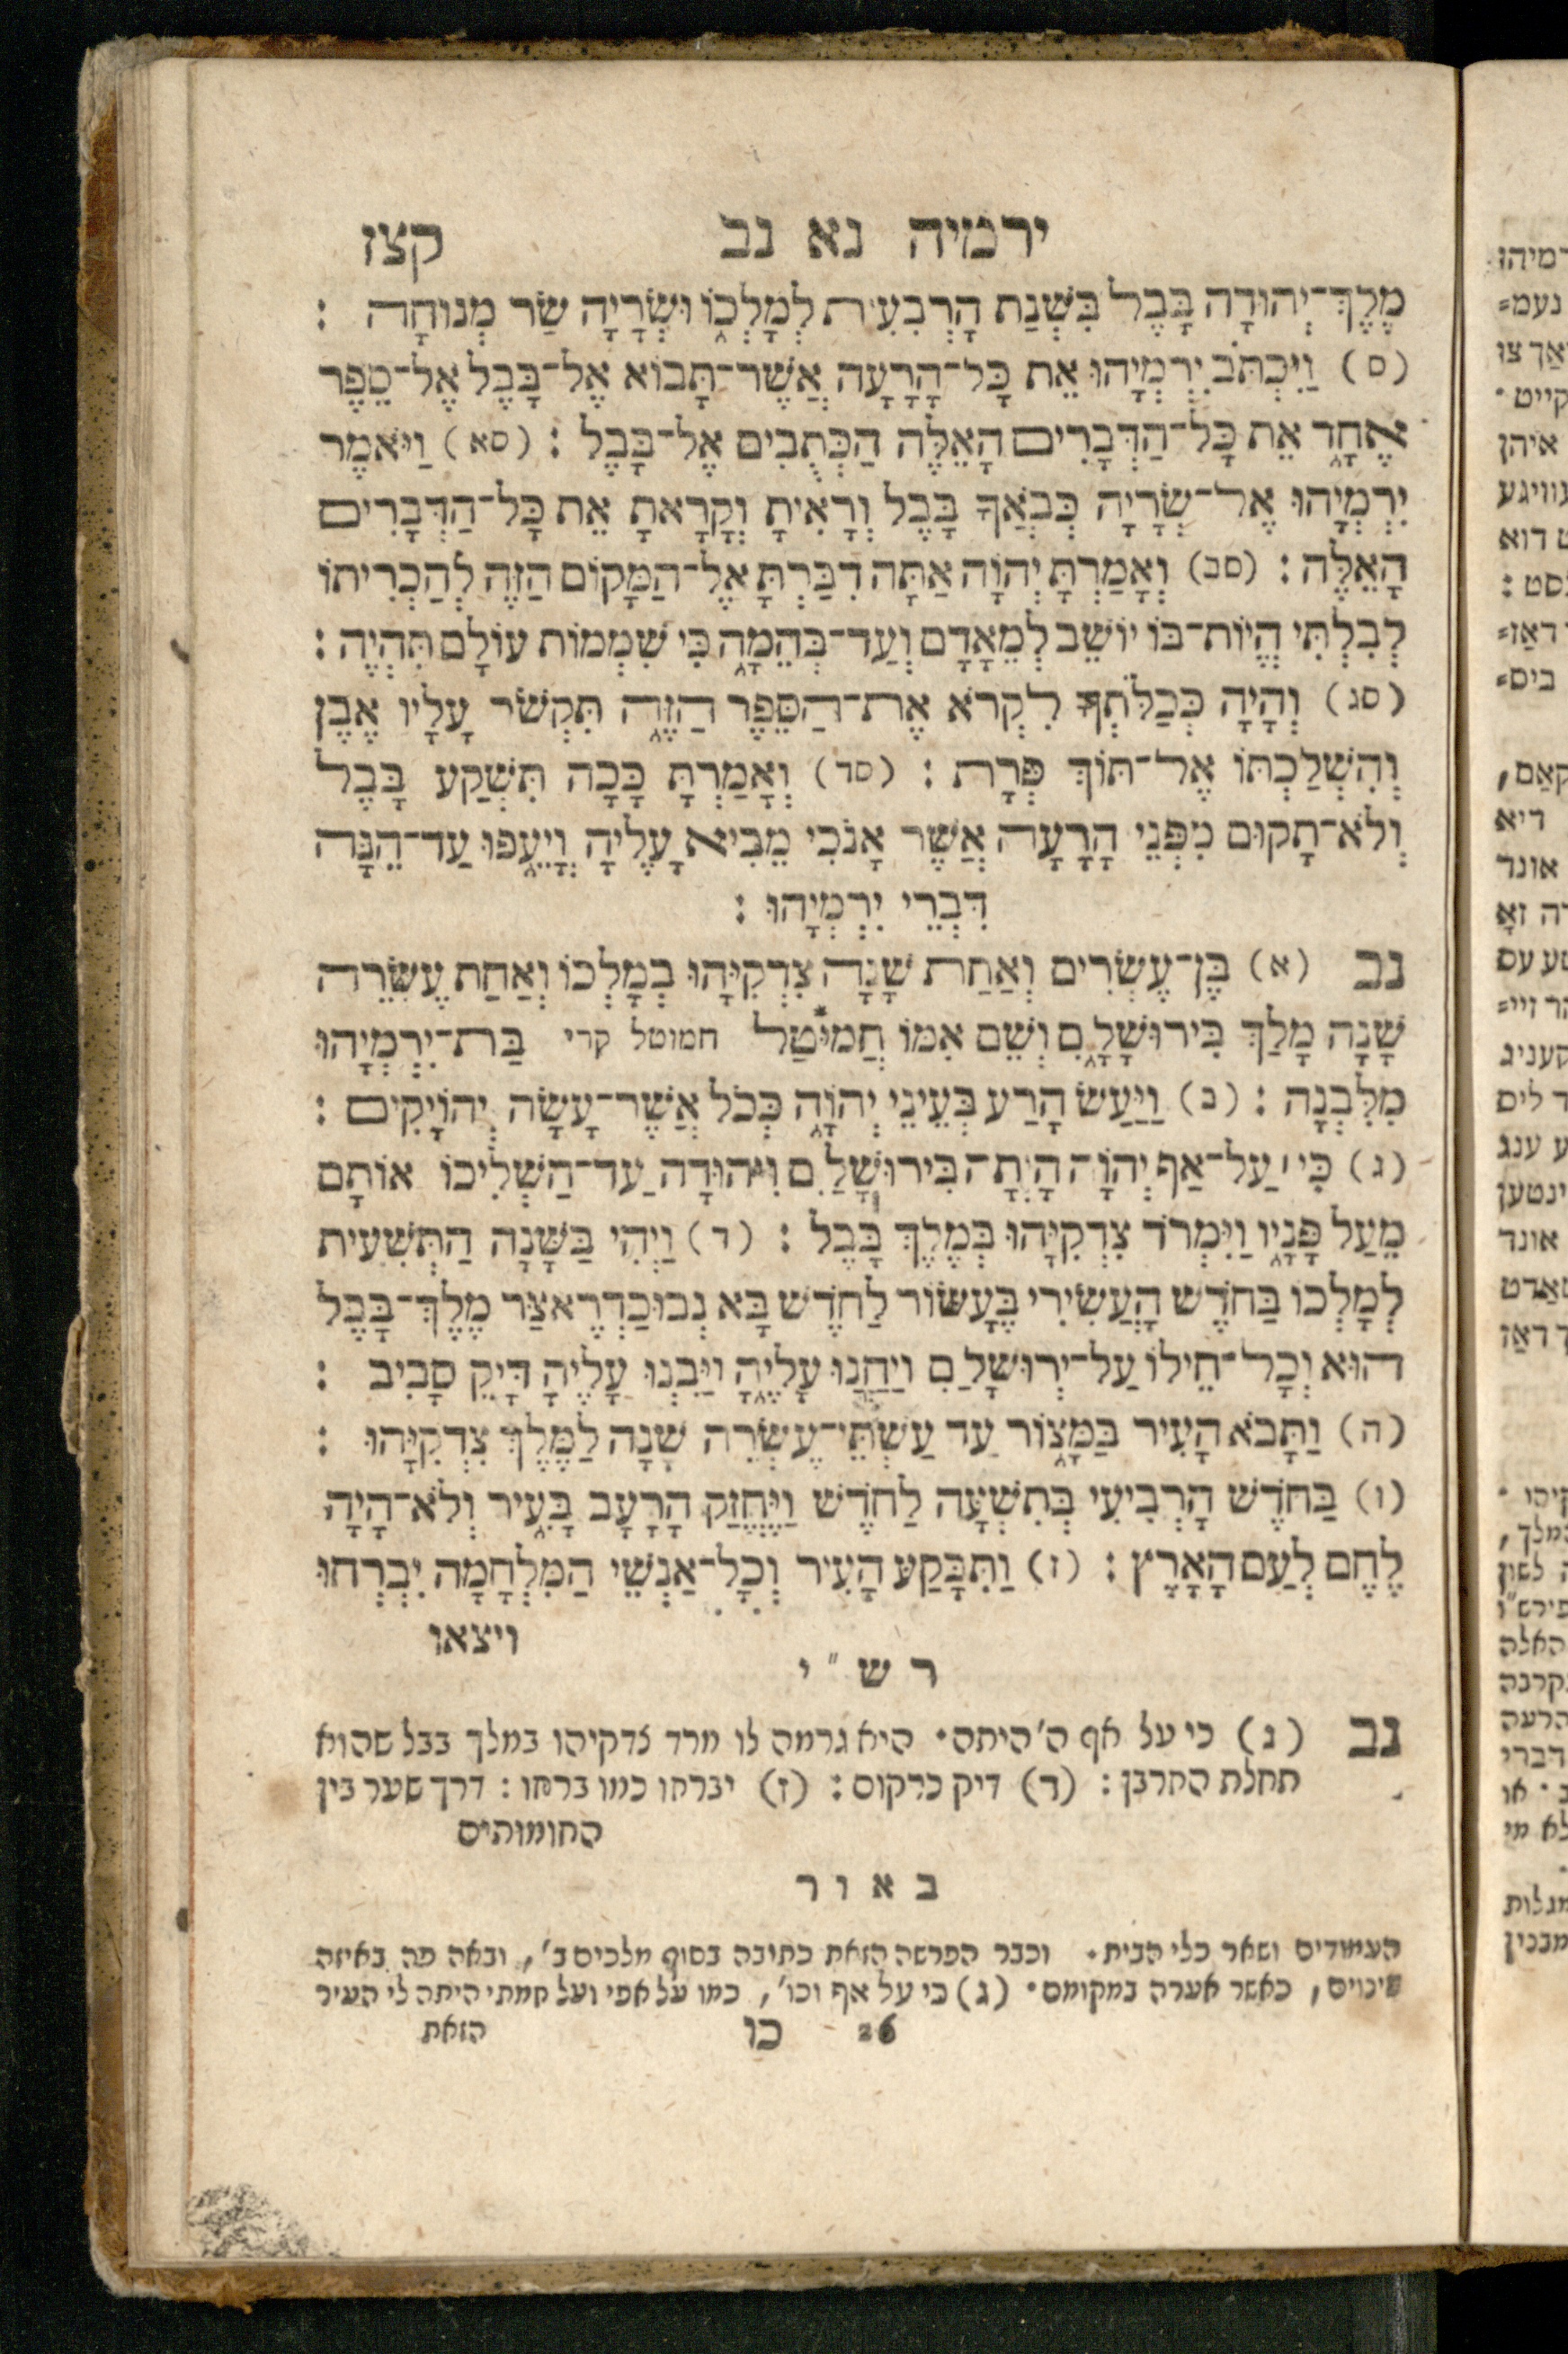 ירמיה נא נב קצז
מֶלֶךְ־יְהוּדָה בָּבֶל בִּשְׁנַת הָרְבִעִית לְמָלְכוֹ וּשְׂרָיָה שַׂר מְנוּחָה :
(ס) וַיִּכְתֹּב יִרְמְיָהוּ אֵת כָּל־הָרָעָה אֲשֶׁר־תָּבוֹא אֶל־בָּבֶל אֶל־סֵפֶר
אֶחָד אֵת כָּל־הַדְּבָרִים הָאֵלֶּה הַכְּתֻבִים אֶל־בָּבֶל : (סא) וַיֹּאמֶר
יִרְמְיָהוּ אֶל־שְׂרָיָה כְּבֹאֲךָ בָּבֶל וְרָאִיתָ וְקָרָאתָ אֵת כָּל־הַדְּבָרִים
הָאֵלֶּה : (סב) וְאָמַרְתָּ יְהוָֹה אַתָּה דִבַּרְתָּ אֶל־הַמָּקוֹם הַזֶּה לְהַכְרִיתוֹ
לְבִלְתִּי הֱיוֹת־בּוֹ יוֹשֵׁב לְמֵאָדָם וְעַד־בְּהֵמָה כִּי שִׁמְמוֹת עוֹלָם תִּהְיֶה :
(סג) וְהָיָה כְּכַלֹּתְךָ לִקְרֹא אֶת־הַסֵּפֶר הַזֶּה תִּקְשֹׁר עָלָיו אֶבֶן
וְהִשְׁלַכְתּוֹ אֶל־תּוֹךְ פְּרָת : (סד) וְאָמַרְתָּ כָּכָה תִּשְׁקַע בָּבֶל
וְלֹא־תָקוּם מִפְּנֵי הָרָעָה אֲשֶׁר אָנֹכִי מֵבִיא עָלֶיהָ וְיָעֵפוּ עַד־הֵנָּה
דִּבְרֵי יִרְמְיָהוּ :
נב (א) בֶּן־עֶשְׂרִים וְאַחַת שָׁנָה צִדְקִיָּהוּ בְמָלְכוֹ וְאַחַת עֶשְׂרֵה
שָׁנָה מָלַךְ בִּירוּשָׁלִָם וְשֵׁם אִמּוֹ חֲמיּטַל חמוטל קרי בַּת־יִרְמְיָהוּ
מִלִּבְנָה : (ב) וַיַּעַשׂ הָרַע בְּעֵינֵי יְהוָֹה כְּכֹל אֲשֶׁר־עָשָׂה יְהוֹיָקִים :
(ג) כִּי עַל־אַף יְהוָֹה הָיְתָה בִּירוּשָׁלִַם וִיהוּדָה עַד־הַשְׁלִיכוֹ אוֹתָם
מֵעַל פָּנָיו וַיִּמְרֹד צִדְקִיָּהוּ בְּמֶלֶךְ בָּבֶל : (ד) וַיְהִי בַשָּׁנָה הַתְּשִׁעִית
לְמָלְכוֹ בַּחֹדֶשׁ הָעֲשִׂירִי בֶּעָשׂוֹר לַחֹדֶשׁ בָּא נְבוּכַדְרֶאצַּר מֶלֶךְ־בָּבֶל
הוּא וְכָל־חֵילוֹ עַל־יְרוּשָׁלִַם וַיַּחֲנוּ עָלֶיהָ וַיִּבְנוּ עָלֶיהָ דָּיֵק סָבִיב :
(ה) וַתָּבֹא הָעִיר בַּמָּצוֹר עַד עַשְׁתֵּי־עֶשְׂרֵה שָׁנָה לַמֶּלֶךְ צִדְקִיָּהוּ :
(ו) בַּחֹדֶשׁ הָרְבִיעִי בְּתִשְׁעָה לַחֹדֶשׁ וַיֶּחֱזַק הָרָעָב בָּעִיר וְלֹא־הָיָה
לֶחֶם לְעַם הָאָרֶץ : (ז) וַתִּבָּקַע הָעִיר וְכָל־אַנְשֵׁי הַמִּלְחָמָה יִבְרְחוּ
ויצאו
ר ש " י
נב (ג) כי על אף ה' היתה. היא גרמה לו מרד צדקיהו במלך בבל שהוא
תחלת החרבן : (ד) דיק כרקום : (ז) יברחו כמו ברחו : דרך שער בין
החומותים
ב א ו ר
העמודים ושאר כלי הבית. וכבר הפרשה הזאת כתיבה בסוף מלכים ב', ובאה פה באיזה
שינוים, כאשר אערה במקומם. (ג) כי על אף וכו', כמו על אפי ועל חמתי היתה לי העיר
26 כו הזאת